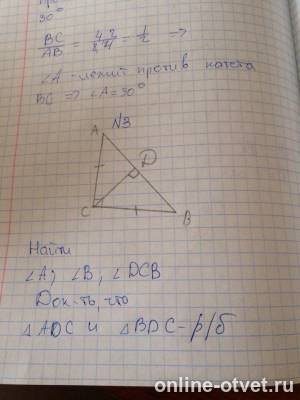 30°
BC/AB = 42/84 = 1/2 =>
∠A - лежит против катета
BC => ∠A = 30°
N3
A
D
C
B
Найти
∠A; ∠B; ∠DCB
Док-ть, что
△ADC и △BDC - р/б
online-otvet.ru